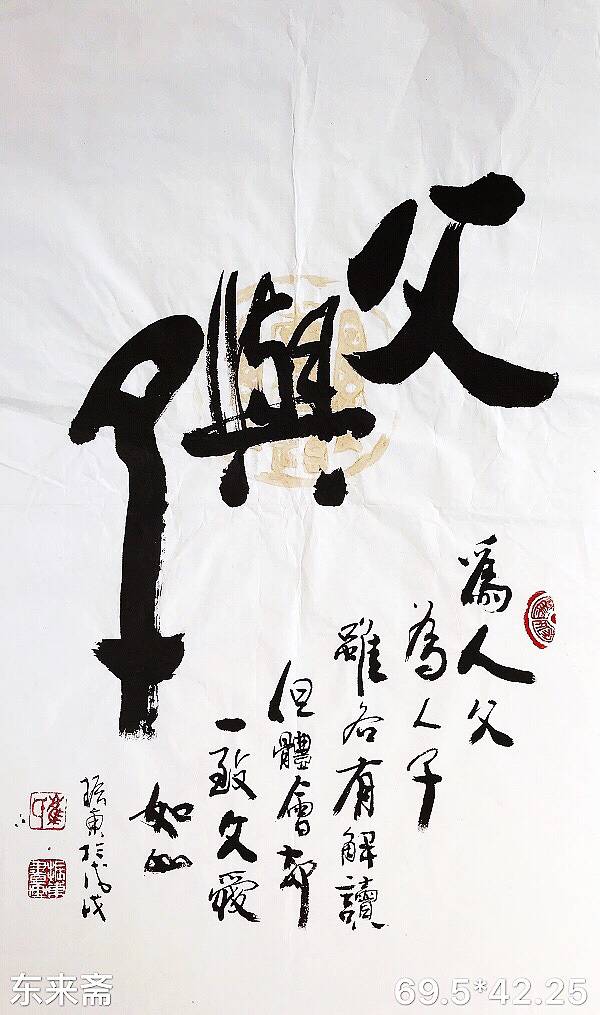 父與子
為人父
為人子
雖各有解讀
但體會却
一致父愛
如山
振東於戊戌
东来斋
69.5*42.25